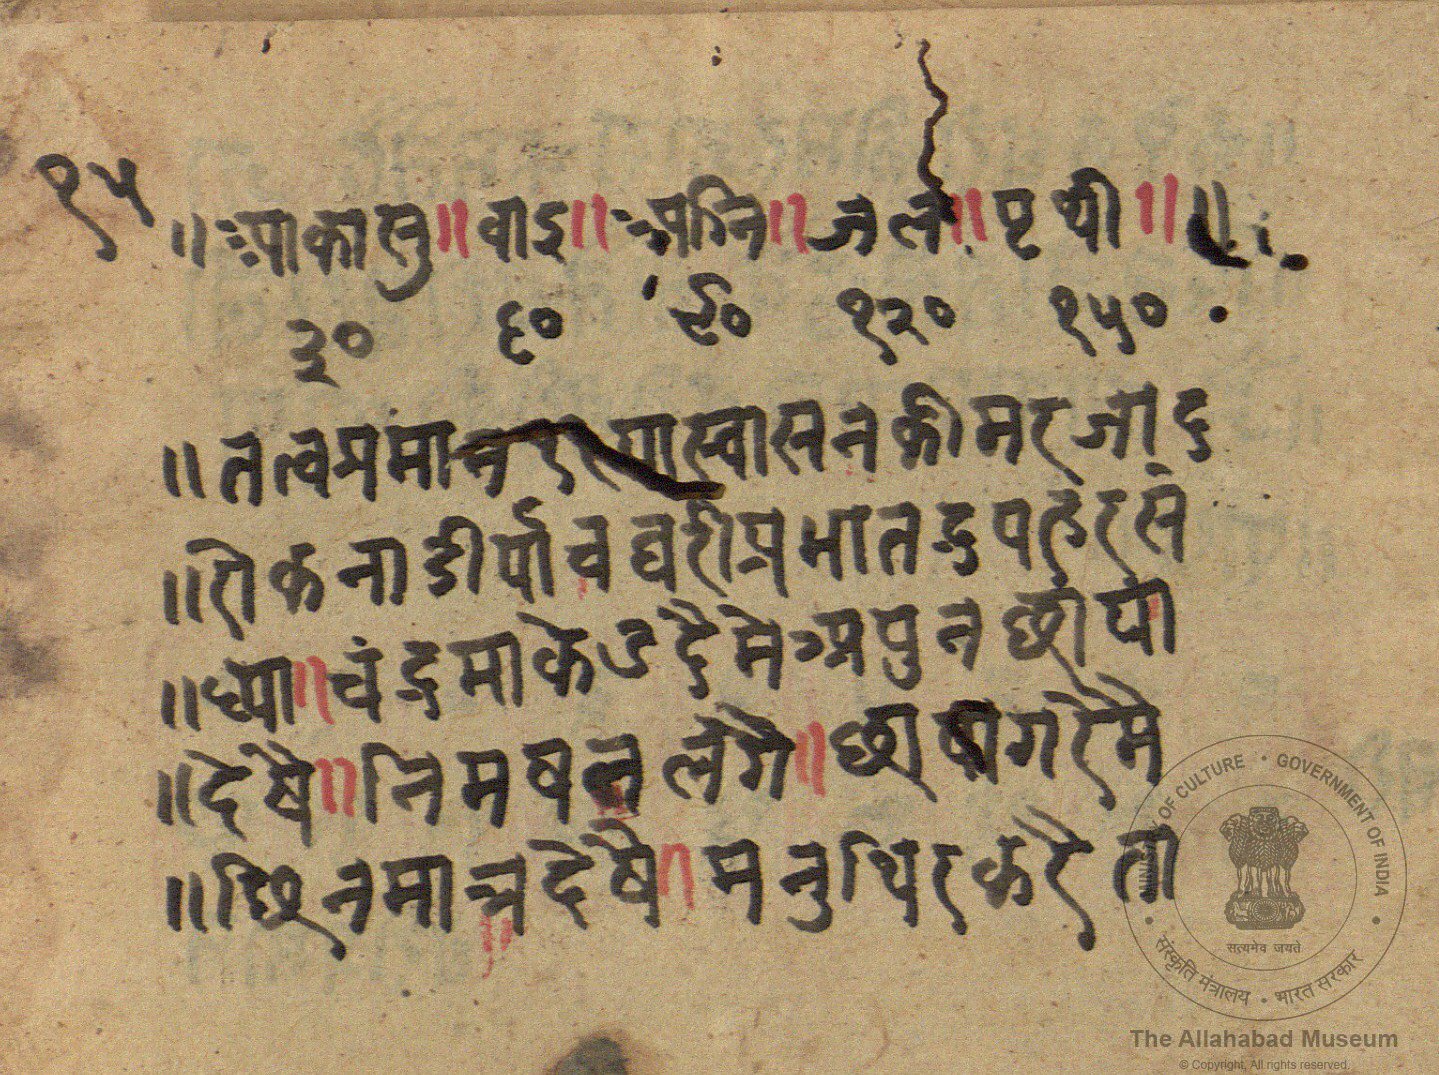 १५
॥ आकासु॥ वाइ॥ अग्नि॥ जल॥ पृथी॥ ॥
३० ६० ९० १२० १५०
॥ तत्वप्रमान स्वासनकीमरजाद
॥ रोकनाडीर्पाचघरीप्रभातदुपहरसं
॥ ध्या॥ चंद्रमाकेउदैमेअपुनछांयां
॥ देषै॥ निमषनलगै॥ छा गरैमै
॥ छिनमात्रदेषै॥ मनुथिरकरैतौ
MINISTRY OF CULTURE • GOVERNMENT OF INDIA
सत्यमेव जयते
संस्कृति मंत्रालय • भारत सरकार
The Allahabad Museum
© Copyright, All rights reserved.